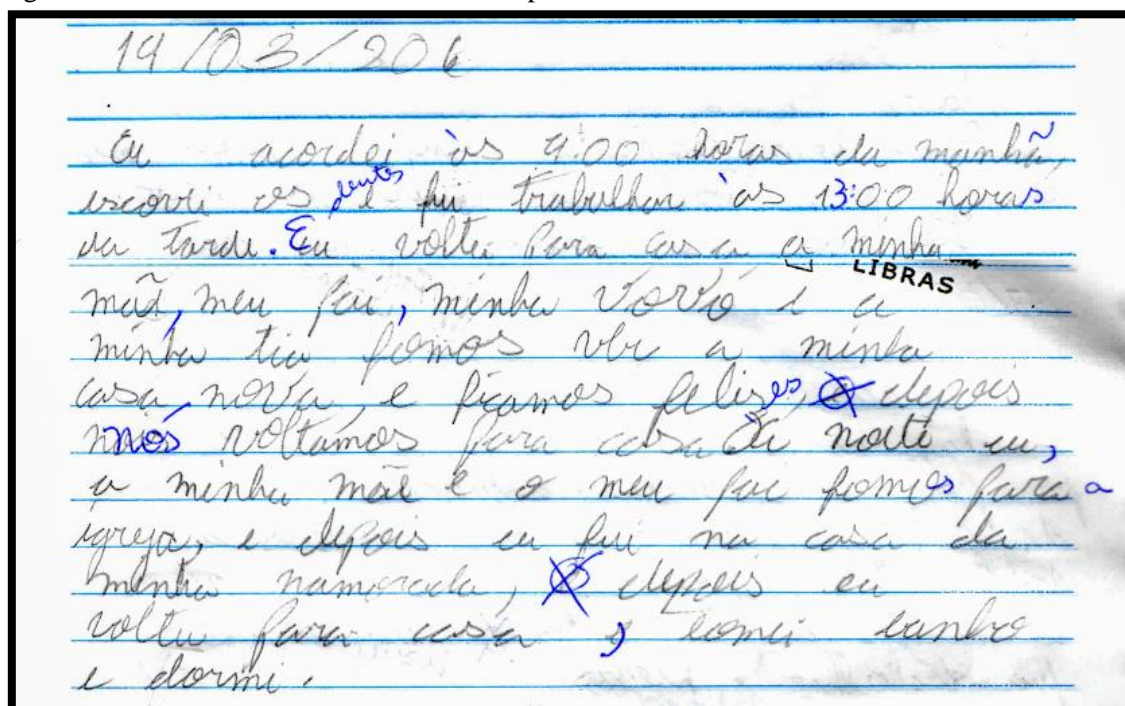 19/03/206
Eu acordei às 9:00 horas da manhã,
escovi os dentes e fui trabalhar às 13:00 horas
da tarde. Eu voltei Para casa a minha
LIBRAS
mãe, meu pai, minha vovó e a
minha tia fomos ver a minha
casa nova, e ficamos felises, depois
nós voltamos para casa de noite eu,
a minha mãe e o meu pai fomos para a
igreja, e depois eu fui na casa da
minha namorada, depois eu
voltei para casa, tomei banho
e dormi.